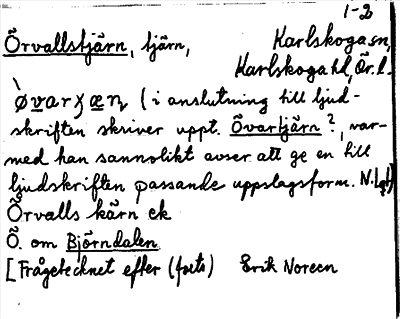 1-2
Örvallstjärn, tjärn, Karlskoga sn,
Karlskoga hd, Ör. l.
øvarʒæɳ (i anslutning till ljud-
skriften skriver uppt. Övartjärn?, var-
med han sannolikt avser att ge en till
ljudskriften passande uppslagsform. N. Lgt)
Örvalls kärn ek
Ö. om Björndalen
[Frågetecknet efter (forts) Erik Noreen